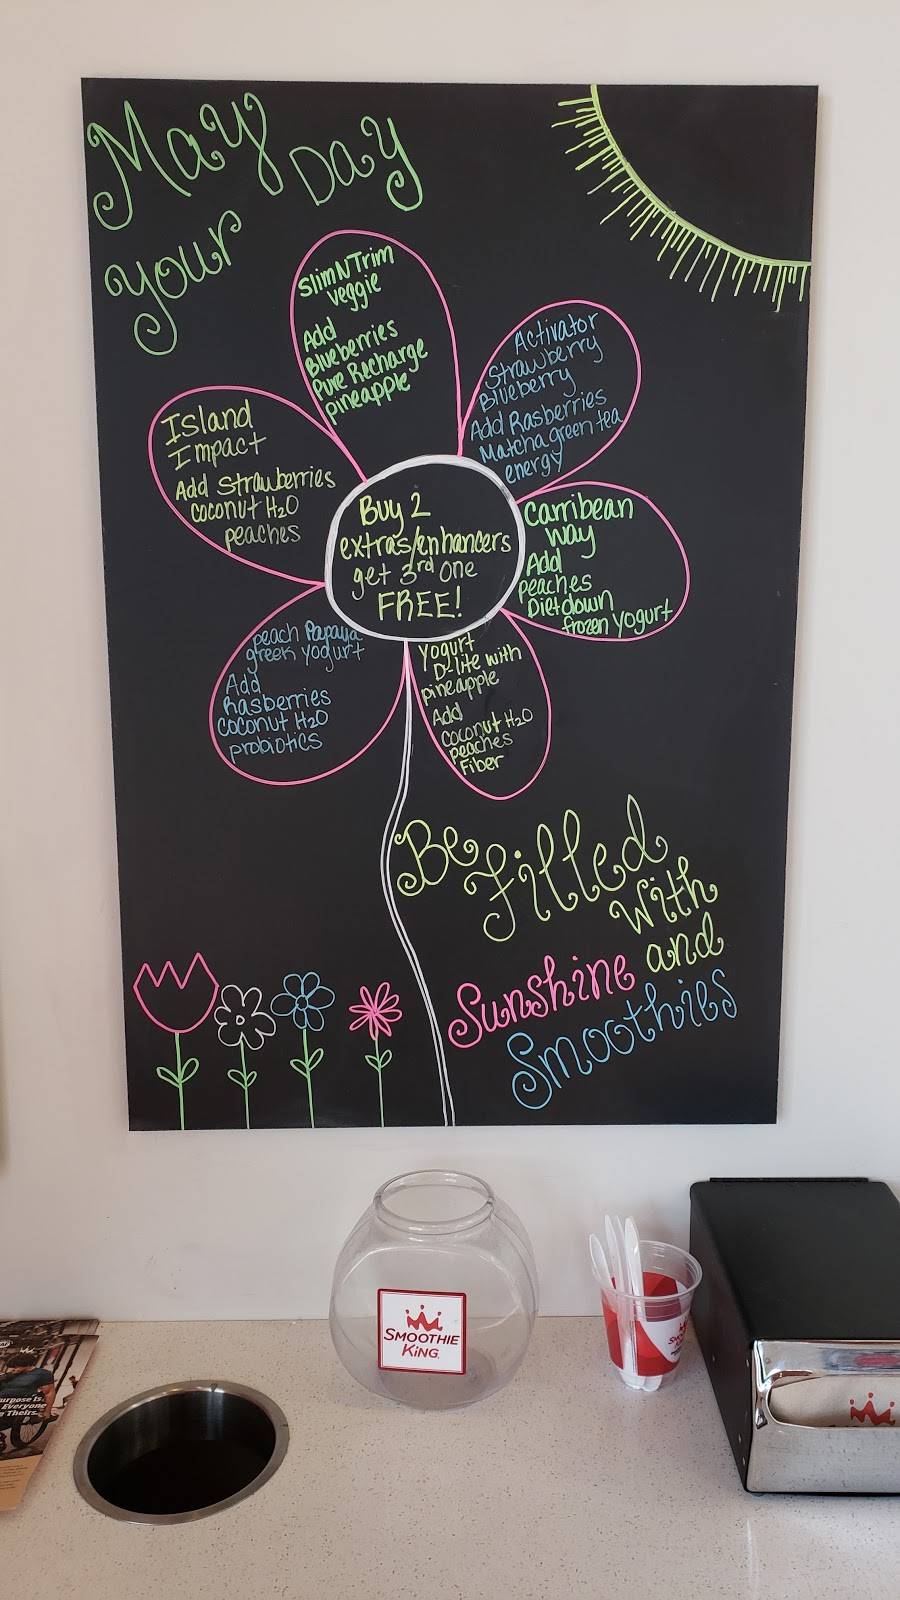 May Day
your
SlimNTrim
veggie
Add
Blueberries
Pure Recharge
pineapple
Activator
Strawberry
Blueberry
Add Rasberries
Matcha green tea
energy
Island
Impact
Add Strawberries
coconut H2O
peaches
Buy 2
extras/enhancers
get 3rd one
FREE!
Carribean
Way
Add
peaches
Dietdown
frozen Yogurt
peach Papaya
greek yogurt
Add
Rasberries
coconut H2O
probiotics
Yogurt
D-lite with
pineapple
Add
coconut H2O
peaches
Fiber
Be
Filled
With
Sunshine and
Smoothies
SMOOTHIE
KING
urpose is
Everyone
Theirs.